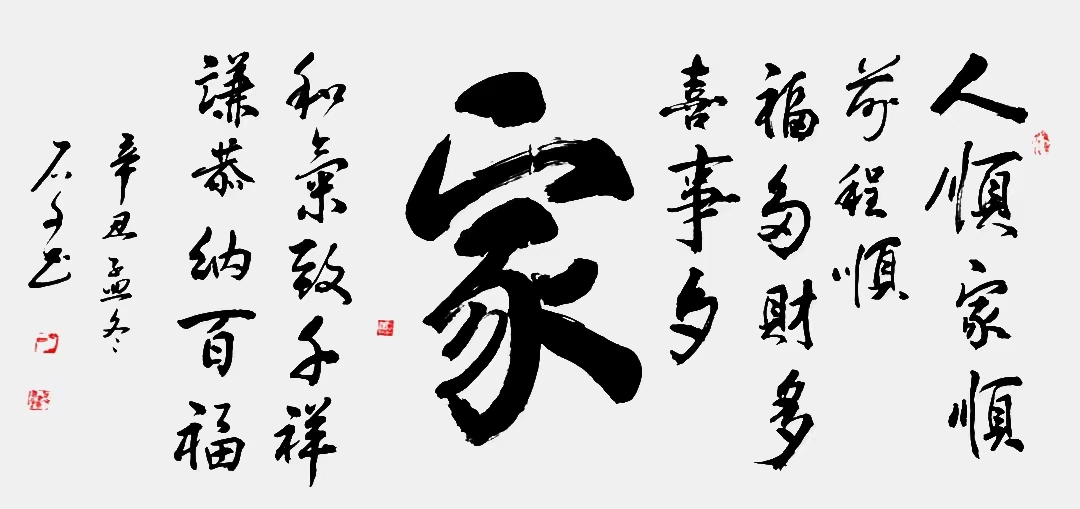 人順家順
前程順
福多財多
喜事多
家
和氣致千祥
謙恭納百福
辛丑孟冬
石书